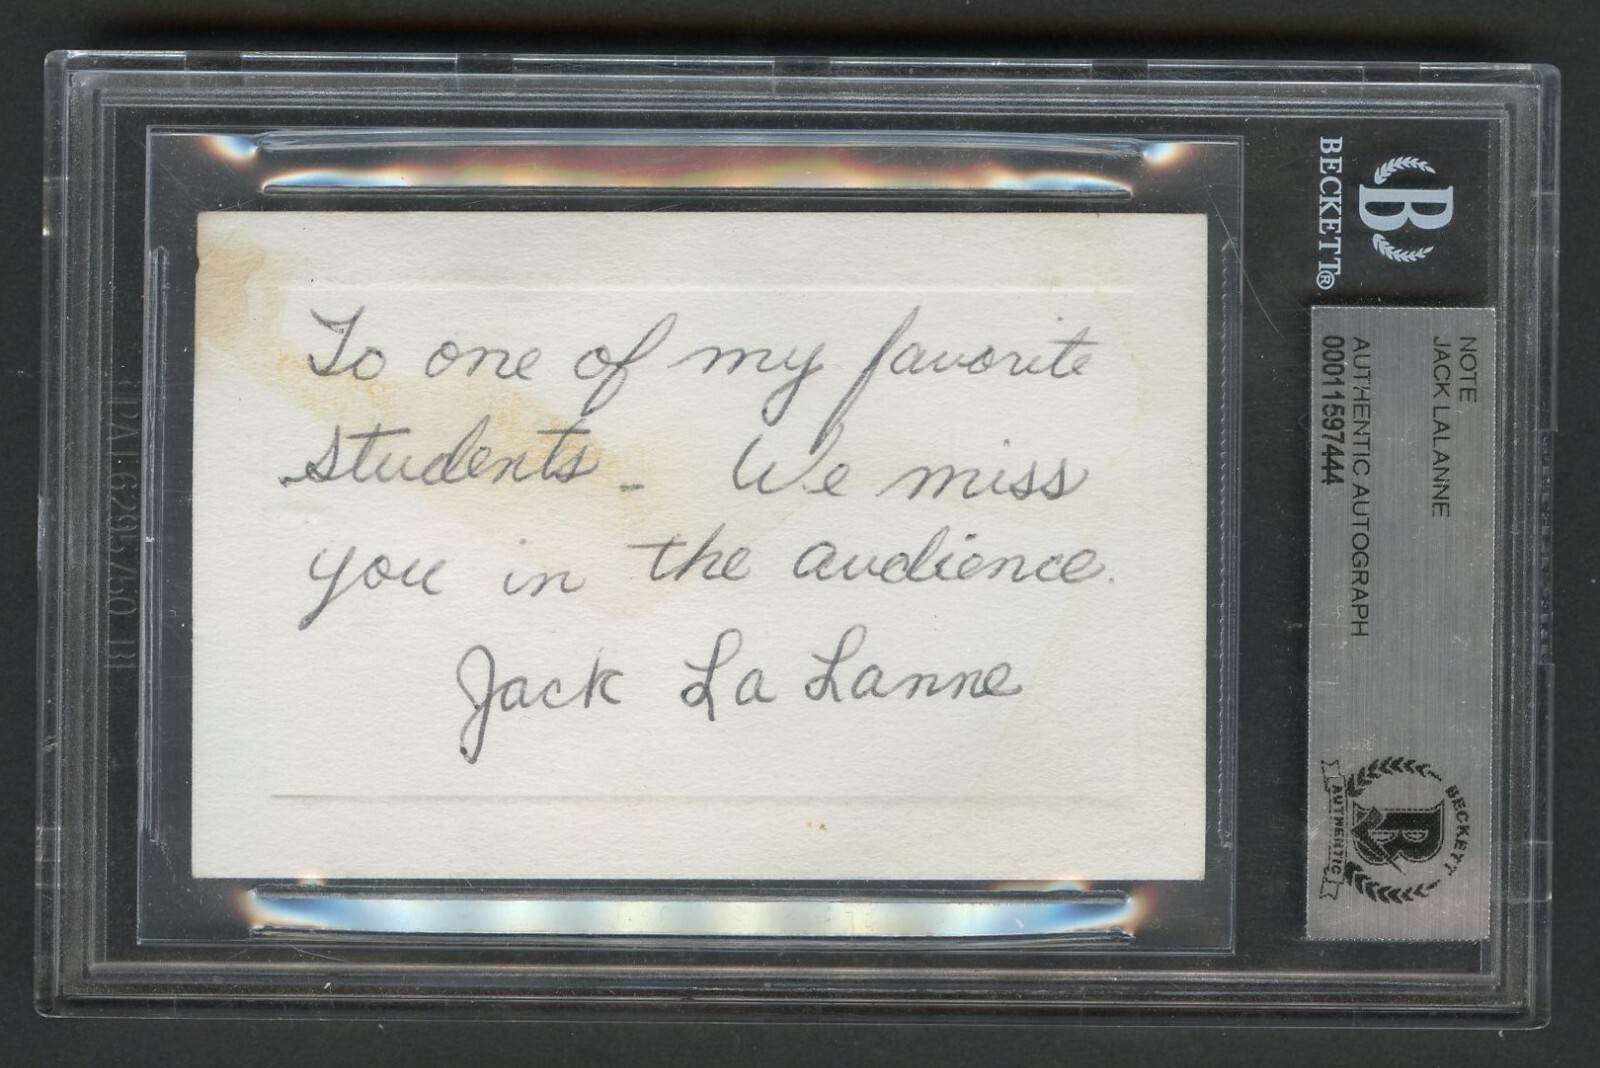 To one of my favorite
students - We miss
you in the audience.
Jack La Lanne
BECKETT®
NOTE
JACK LALANNE
AUTHENTIC AUTOGRAPH
00011597444
BECKETT
AUTHENTIC